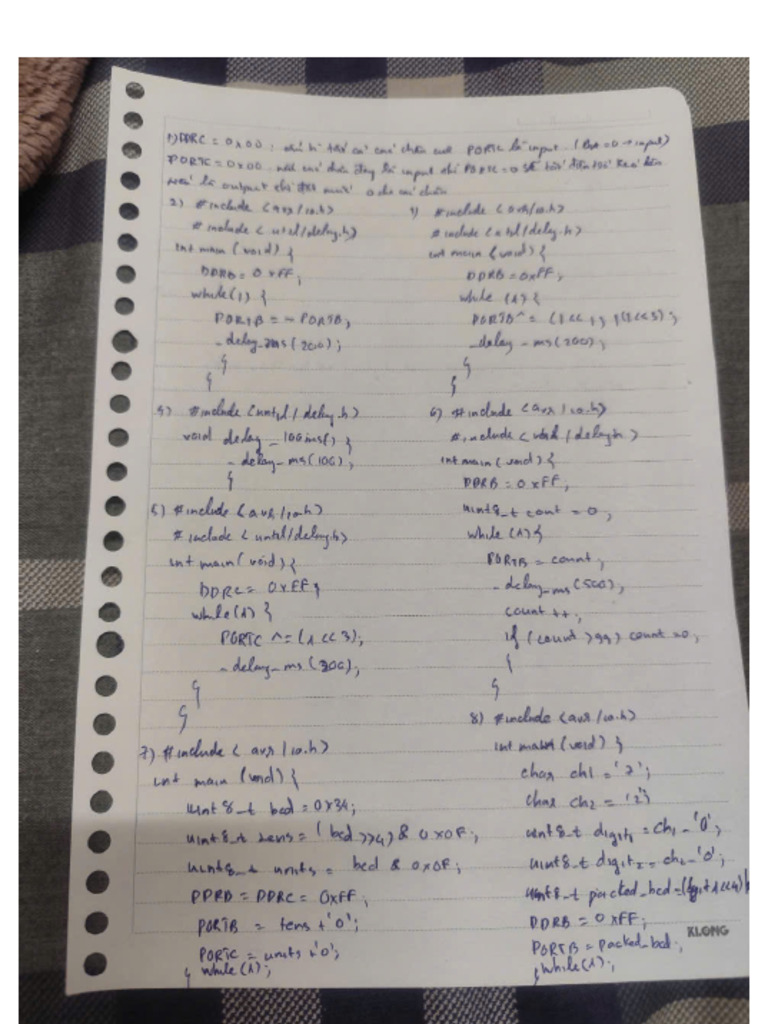 1) DDRC = 0x00 : tất cả các chân của PORTC là input (Bit = 0 → input)
PORTC = 0x00 . nếu các chân đây là input thì PORTC = 0 sẽ
nếu là output thì mức 0 cho các chân
2) #include <avr/io.h>
#include <util/delay.h>
int main (void) {
DDRB = 0xFF;
while(1) {
PORTB = ~PORTB;
_delay_ms(200);
}
}
4) #include <avr/io.h>
#include <util/delay.h>
int main (void) {
DDRB = 0xFF;
while (1) {
PORTB ^= (1<<1) | (1<<3);
_delay_ms(200);
}
}
3) #include <util/delay.h>
void delay_100ms() {
_delay_ms(100);
}
5) #include <avr/io.h>
#include <util/delay.h>
int main (void) {
DDRC = 0xFF;
while(1) {
PORTC ^= (1<<3);
_delay_ms(200);
}
}
6) #include <avr/io.h>
#include <util/delay.h>
int main (void) {
DDRB = 0xFF;
uint8_t cont = 0;
while (1) {
PORTB = count;
_delay_ms(500);
count ++;
if (count >99) count =0;
}
}
7) #include <avr/io.h>
int main (void) {
uint8_t bcd = 0x34;
uint8_t tens = (bcd >>4) & 0x0F;
uint8_t units = bcd & 0x0F;
DDRB = DDRC = 0xFF;
PORTB = tens + '0';
PORTC = units + '0';
} while(1);
8) #include <avr/io.h>
int main (void) }
char ch1 = '7';
char ch2 = '2';
uint8_t digit1 = ch1 - '0';
uint8_t digit2 = ch2 - '0';
uint8_t packed_bcd = (digit1<<4)|
DDRB = 0xFF;
PORTB = packed_bcd;
} while(1);
KLONG